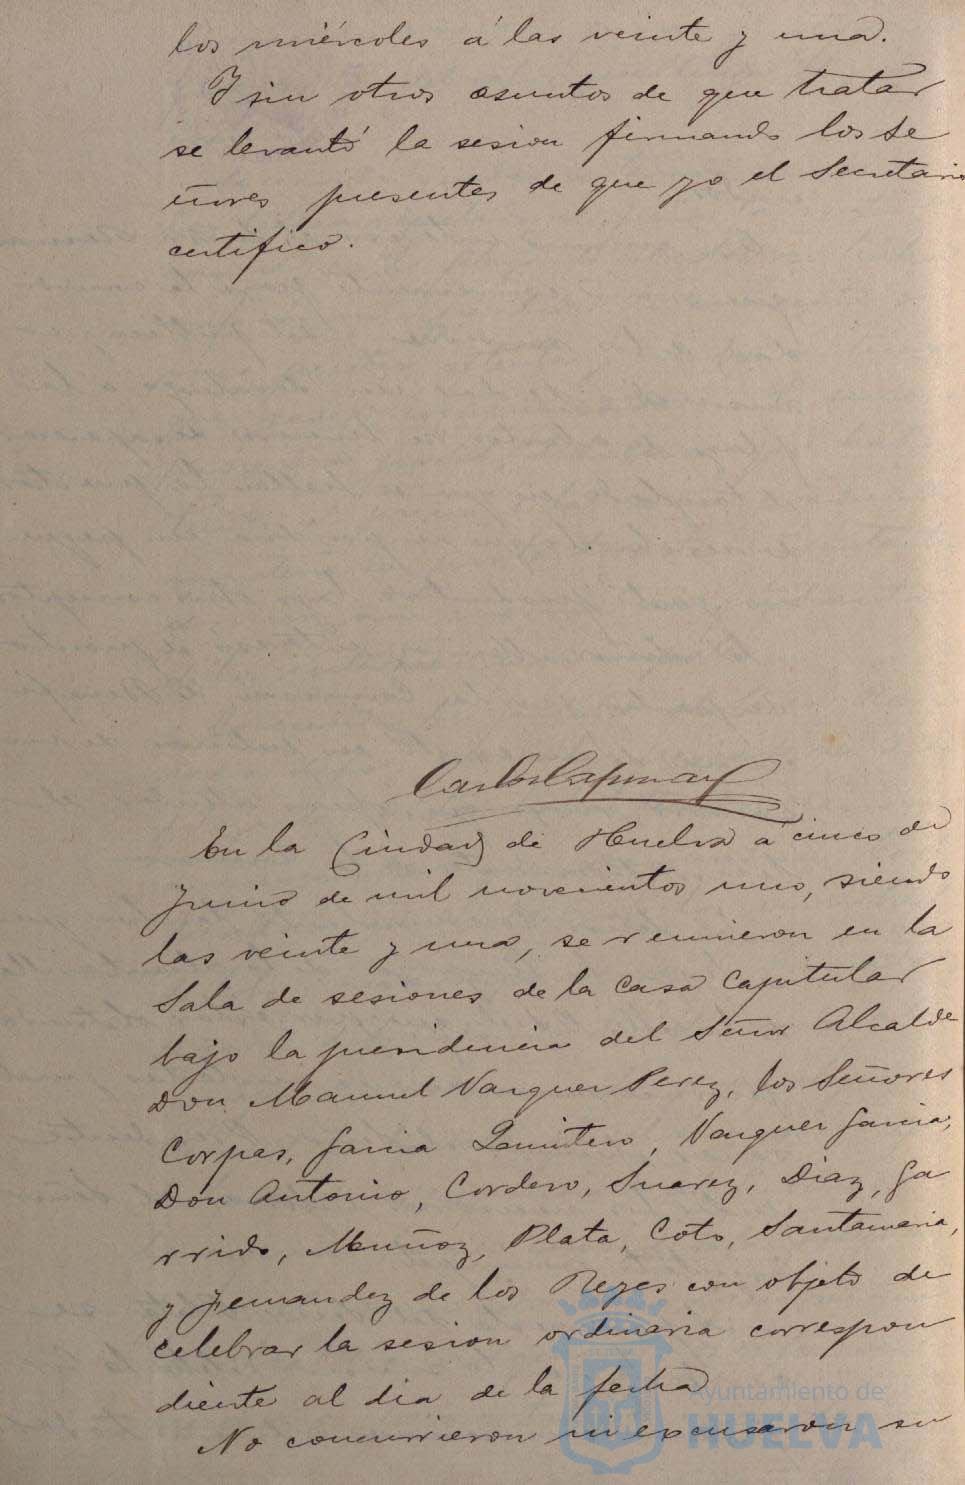 los miércoles á las veinte y una.
Y sin otros asuntos de que tratar
se levantó la sesion firmando los Se
ñores presentes de que yo el Secretario
certifico.
Carlos
En la Ciudad de Huelva á cinco de
Junio de mil novecientos uno, siendo
las veinte y una, se reunieron en la
Sala de sesiones de la Casa Capitular
bajo la presidencia del Señor Alcalde
Don Manuel Vazquez Perez, los Señores
Corpas, Garcia Quintero, Vazquez Garcia,
Don Antonio, Cordero, Suarez, Diaz, Ga
rrido, Muñoz, Plata, Coto, Santamaria,
y Fernandez de los Reyes con objeto de
celebrar la sesion ordinaria correspon
diente al dia de la fecha
No concurrieron ni excusaron su
Ayuntamiento de
HUELVA